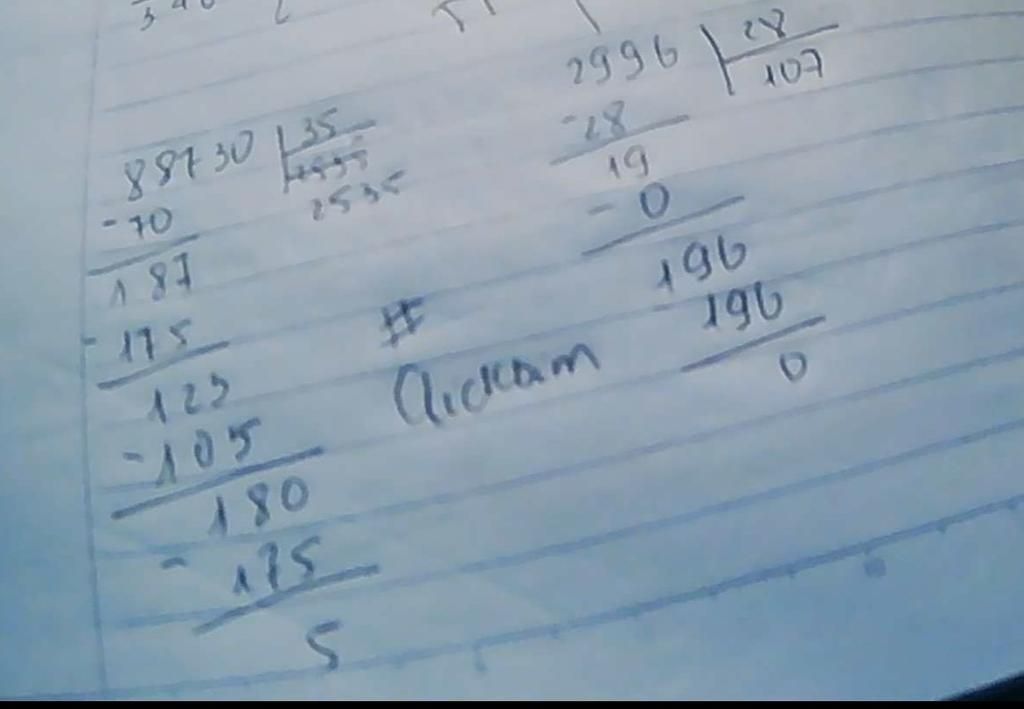 88730 35
2535
-70
187
- 175
123
-105
180
- 175
5
2996 28
107
-28
19
- 0
196
196
0
#